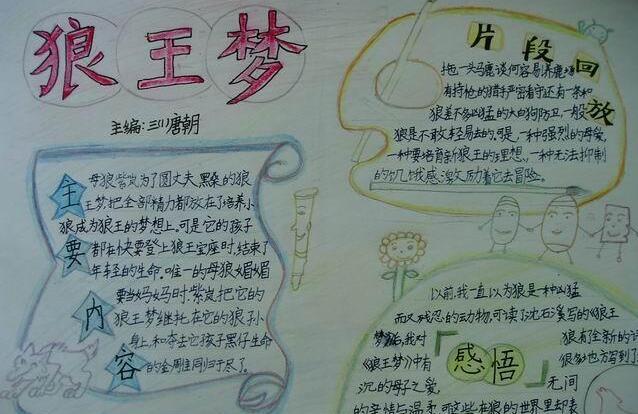 狼王梦
主编:三川唐朝
主要内容
母狼紫岚为了圆丈夫黑桑的狼
王梦把全部精力都放在了培养小
狼成为狼王的梦想上。可是它的孩子
都在快要登上狼王宝座时,结束了
年轻的生命。唯一的母狼媚媚
要当妈妈时,紫岚把它的
狼王梦继托在它的狼孙
身上,和夺去它孩子黑仔生命
的金雕同归于尽了。
片段回放
拖一头马鹿谈何容易,养鹿场
有持枪的猎手严密看守还有一条和
狼差不多凶猛的大白狗防卫,一般
狼是不敢轻易去的。可是,一种强烈的母爱,
一种要培育新狼王的理想,一种无法抑制
的饥饿感激励着它去冒险。
感悟
以前,我一直以为狼是一种凶猛
而又残忍的动物,可读了沈石溪写的《狼王
梦》后,我对
狼有全新的
《狼王梦》中有
很多也方写到了
沉的母子之爱,
无间
的亲情与温柔,可这些在狼的世界里却表